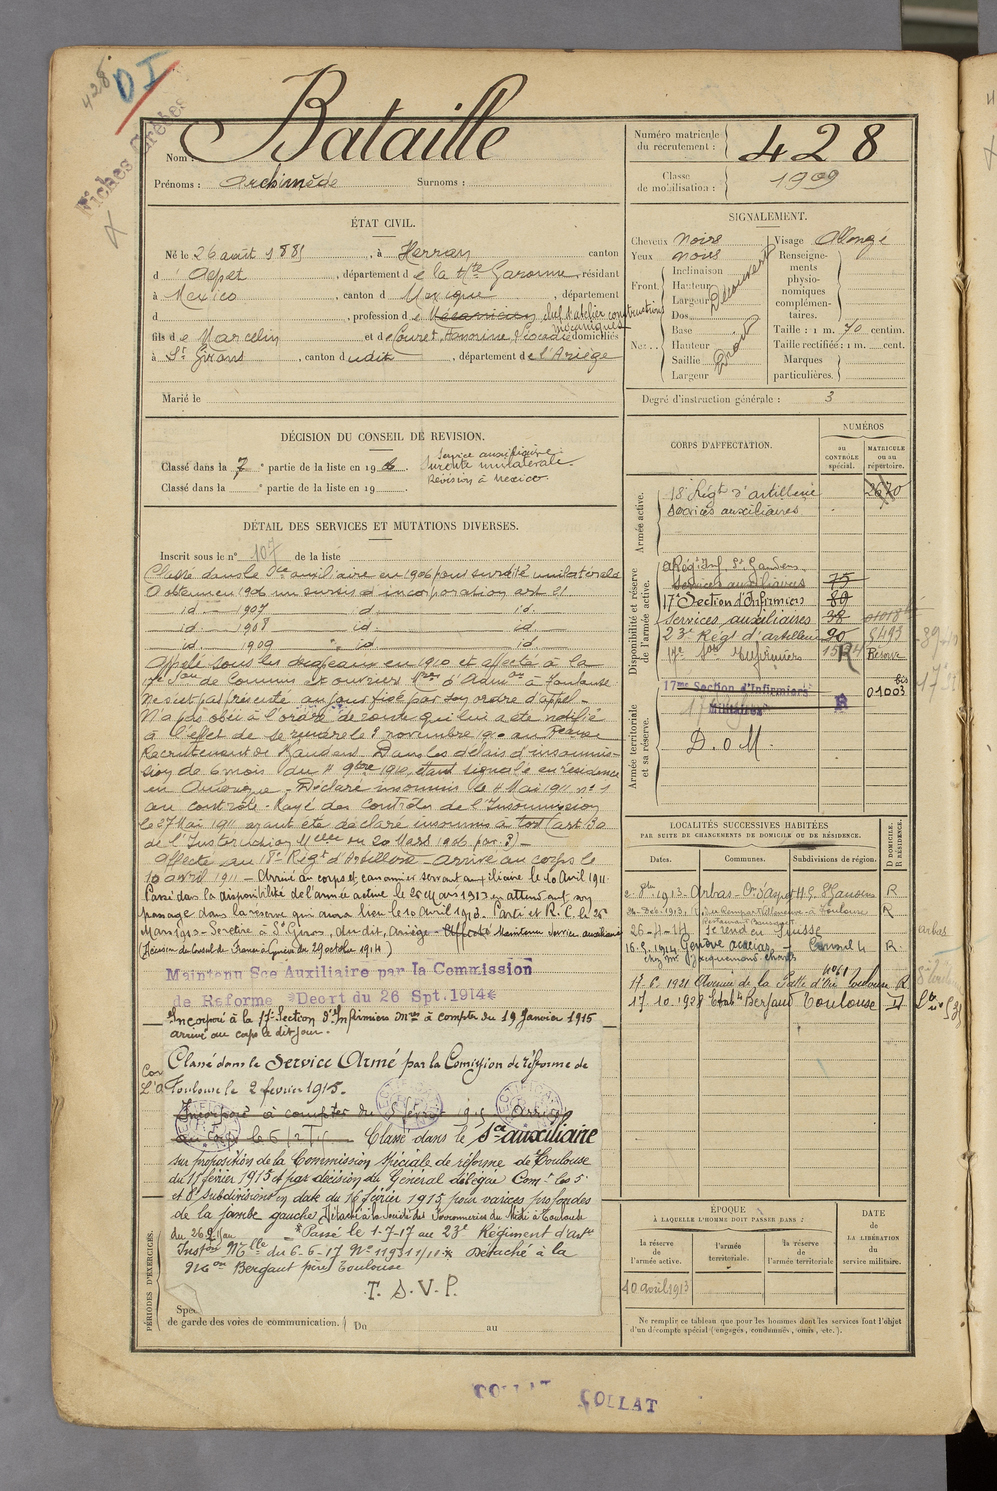 428
DI
Fiches
Nom : Bataille
Prénoms : Archimède Surnoms :
Numéro matricule du recrutement : 428
Classe de mobilisation : 1909
ÉTAT CIVIL.
Né le 26 août 1885, à Herran canton
d'Aspet, département de la Hte Garonne, résidant
à Mexico, canton d Mexique, département
d , profession de Mécanicien chef d'atelier constructions
mécaniques
fils de Marcelin et de Couret, Honorine Léocadie domiciliés
à St Girons, canton dudit, département de l'Ariège
Marié le
SIGNALEMENT.
Cheveux noirs
Yeux noirs
Front. Inclinaison
Hauteur
Largeur
Découvert
Nez : Dos
Base
Hauteur
Saillie
Largeur
Droit
Visage Allongé
Renseignements physionomiques complémentaires.
Taille : 1 m. 70 centim.
Taille rectifiée : 1 m. cent.
Marques particulières.
Degré d'instruction générale : 3
DÉCISION DU CONSEIL DE REVISION.
Classé dans la 7e partie de la liste en 1906.
Classé dans la e partie de la liste en 19
Service auxiliaire.
Surdité unilatérale.
Révision à Mexico.
DÉTAIL DES SERVICES ET MUTATIONS DIVERSES.
Inscrit sous le n° 107 de la liste
Classé dans le Sce auxiliaire en 1906 pour surdité unilatérale
A obtenu en 1906 un sursis d'incorporation art 21
id — 1907 id. id.
id — 1908 id. id.
id — 1909 id. id.
Appelé sous les drapeaux en 1910 et affecté à la
17e Son de Commis et ouvriers Mres d'Admon à Toulouse.
Ne s'est pas présenté au jour fixé par son ordre d'appel —
N'a pas obéi à l'ordre de route qui lui a été notifié
à l'effet de se rendre le 9 novembre 1910 au Bureau
Recrutement St Gaudens. Dans les délais d'insoumis-
sion de 6 mois du 4 9bre 1910, étant signalé en résidence
en Amérique. Déclaré insoumis le 4 Mai 1911 n° 1
au contrôle. Rayé des contrôles de l'Insoumission
le 27 Mai 1911 ayant été déclaré insoumis à tort (art 30
de l'Instruction Melle du 20 Mars 1906 par. 8) —
Affecté au 18e Régt d'Artillerie — Arrivé au corps le
10 avril 1911 — Arrivé au corps et canonnier servant auxiliaire le 10 Avril 1911.
Passé dans la disponibilité de l'armée active le 26 Mars 1913 en attendant son
passage dans la réserve qui aura lieu le 10 Avril 1913. Parti et R. C. le 26
Mars 1913 — Se retire à St Girons, dudit, Ariège — Affecté Maintenu service auxiliaire
(Décision du Consul de France à Genève du 29 octobre 1914)
Maintenu Sce Auxiliaire par la Commission
de Reforme Decrt du 26 Spt. 1914
Incorporé à la 17e Section d'Infirmiers Mres à compter du 19 Janvier 1915
arrivé au corps le dit jour.
Classé dans le Service Armé par la Comission de réforme de
Toulouse le 2 février 1915.
Incorporé à compter du Février 1915 Arrivé
au corps le Classé dans le Sce auxiliaire
sur proposition de la Commission Spéciale de réforme de Toulouse
du 11 février 1915 et par décision du Général délégué Comt les 5e
et 8e subdivisions en date du 16 février 1915 pour varices profondes
de la jambe gauche. Détaché à la Société des Savonneries du Midi à Toulouse
du 26. Passé le 1-7-17 au 23e Régiment d'Artie
Inston Melle du 6-6-17 N° 11931 1/11 Détaché à la
Mson Bergaut frères Toulouse
T. S. V. P.
PÉRIODES D'EXERCICES.
Spéc
de garde des voies de communication. Du au
CORPS D'AFFECTATION.
NUMÉROS
au CONTRÔLE spécial.
MATRICULE ou au répertoire.
Armée active.
18e Régt d'artillerie 2670
Services auxiliaires
Disponibilité et réserve de l'armée active.
Régt Inf St Gaudens.
Services auxiliaires 75
17e Section d'Infirmiers 89
Services auxiliaires 38 01018
23e Régt d'artillerie 90 8493
17e Son Infirmiers 1594 R Réserve
Armée territoriale et sa réserve.
17me Section d'Infirmiers
Militaires R bis 01003
D. o M.
LOCALITÉS SUCCESSIVES HABITÉES
PAR SUITE DE CHANGEMENTS DE DOMICILE OU DE RÉSIDENCE.
D DOMICILE.
R RÉSIDENCE.
Dates. Communes. Subdivisions de région.
1913 Arbas — Con d'Aspet H.G. St Gaudens R
1913. Rempart Villeneuve à Toulouse R
Restaurant Bousquet
26-4-14 Se rend en Suisse
1914 Genève acacias — R.
chez Mr Jacquemond
17. 6. 1921 Avenue de la Patte d'Oie Toulouse R
17. 10. 1928 Etabts Bergaud Toulouse
arbas
ÉPOQUE
À LAQUELLE L'HOMME DOIT PASSER DANS :
la réserve de l'armée active.
l'armée territoriale.
la réserve de l'armée territoriale
DATE de LA LIBÉRATION du service militaire.
10 avril 1913
Ne remplir ce tableau que pour les hommes dont les services font l'objet
d'un décompte spécial (engagés, condamnés, omis, etc.).
COLLAT COLLAT